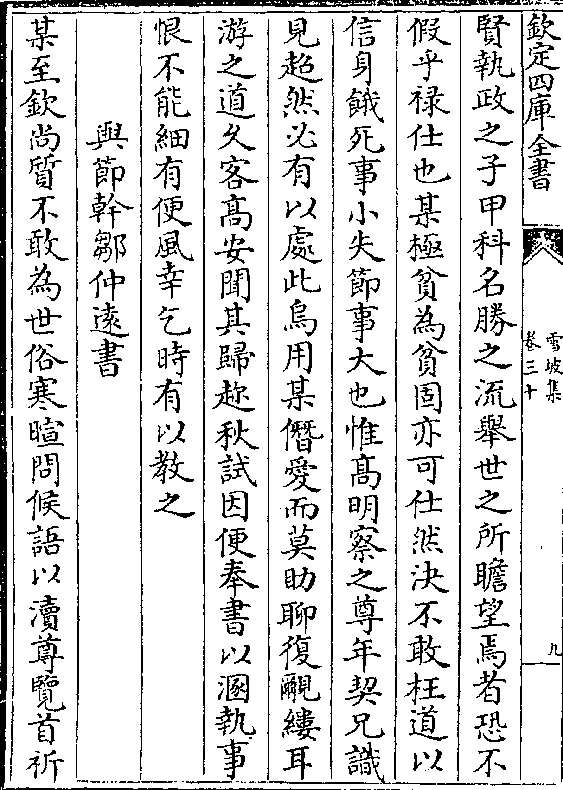 欽定四庫全書
雪坡集
卷三十
九
賢執政之子甲科名勝之流舉世之所瞻望焉者恐不
假乎禄仕也某極貧為貧固亦可仕然决不敢枉道以
信身餓死事小失節事大也惟髙明察之尊年契兄識
見超然必有以處此烏用某僭愛而莫助聊復覼縷耳
游之道乆客髙安聞其歸趂秋試因便奉書以溷執事
恨不能細有便風幸乞時有以教之
與節幹鄒仲逺書
某至欽尚質不敢為世俗寒暄問候語以瀆尊覽首祈